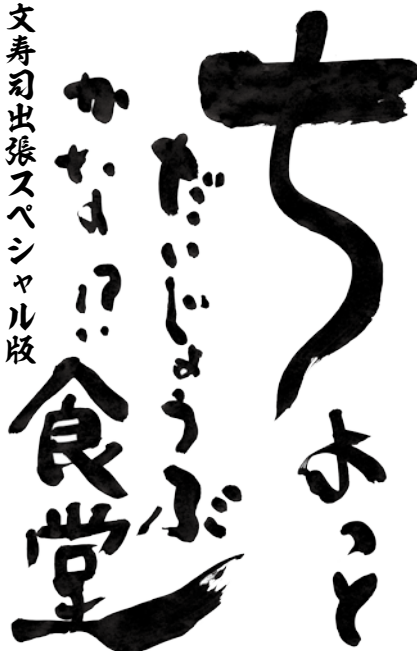 ちょっと
だいじょうぶ
かなぁ!?食堂
文寿司出張スペシャル版